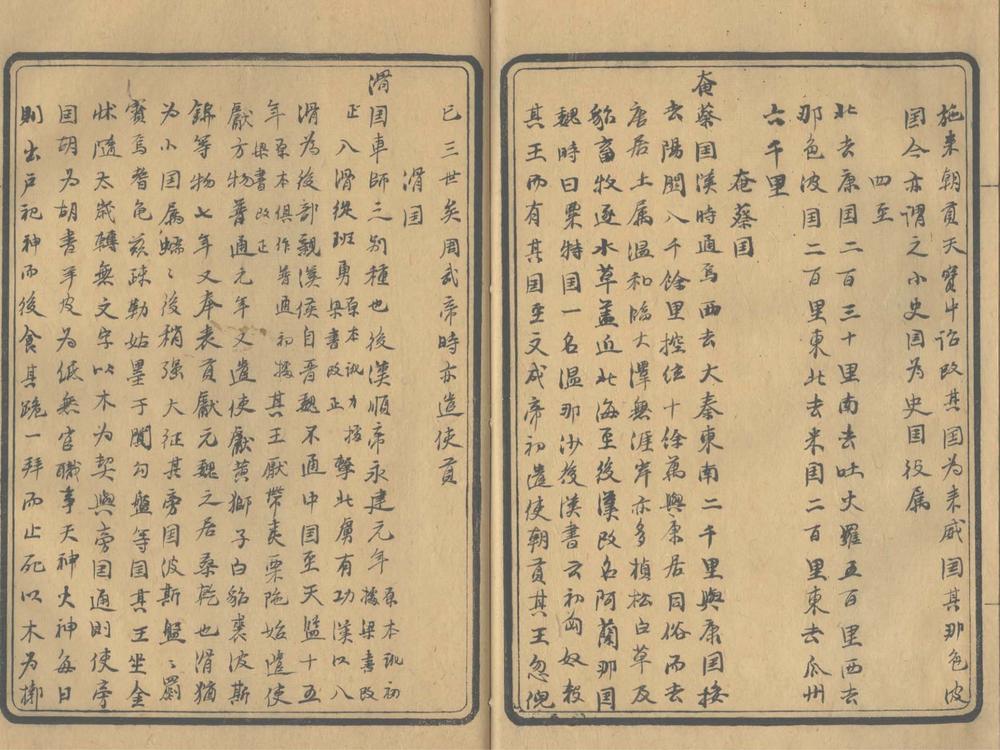 施来朝貢天寶中詔改其国为来威国其那色波
国今亦谓之小史国为史国役属
四至
北去康国二百三十里南去吐火羅五百里西去
那色波国二百里東北去米国二百里東去瓜州
六千里
奄蔡国
奄蔡国漢時通焉西去大秦東南二千里與康国接
去陽関八千餘里控弦十馀萬與康居同俗而去
唐居土属温和臨大澤無涯岸亦多楨松白草及
貂畜牧逐水草蓋近北海至後漢改名阿蘭那国
魏時曰粟特国一名温那沙後漢書云初匈奴殺
其王而有其国至文成帝初遣使朝貢其王忽倪
已三世矣周武帝時亦遣使貢
滑国
滑国車師之别種也後漢順帝永建元年原本訛初據梁書改
正八滑從班勇原本訛力據梁書改正擊北虜有功漢以八
滑为後部親漢侯自晋魏不通中国至天監十五
年原本俱作普通初據梁書改正其王厭帶夷栗陁始遣使
獻方物普通元年又遣使獻黄獅子白貂裘波斯
錦等物七年又奉表貢獻元魏之居桑乾也滑猶
为小国属蠕〻後稍强大征其旁国波斯盤〻罽
賓焉耆龟兹疎勒姑墨于闐勾盤等国其王坐金
牀隨太歲轉無文字以木为契與旁国通則使旁
国胡为胡書羊皮为纸無官職事天神火神每日
則出户祀神而後食其跪一拜而止死以木为槨